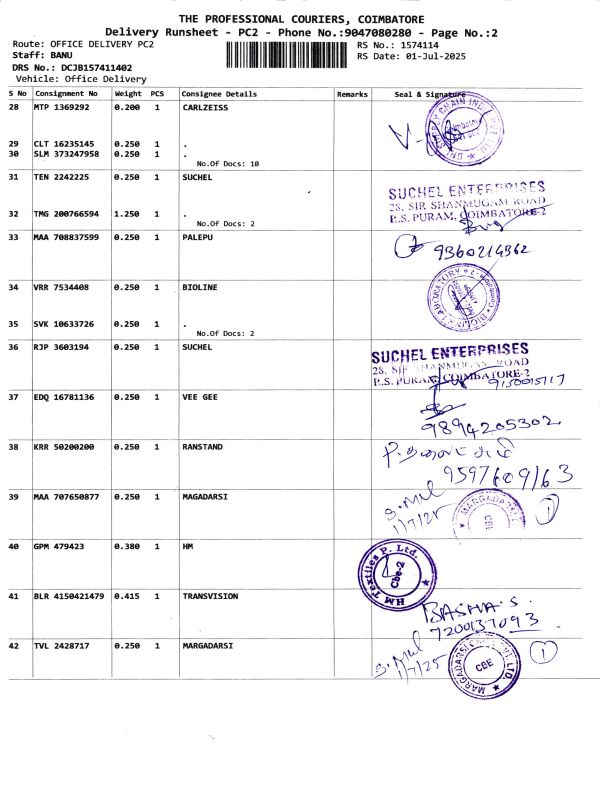 THE PROFESSIONAL COURIERS, COIMBATORE
Delivery Runsheet - PC2 - Phone No.:9047080280 - Page No.:2
Route: OFFICE DELIVERY PC2
Staff: BANU
DRS No.: DCJB157411402
Vehicle: Office Delivery
RS No.: 1574114
RS Date: 01-Jul-2025
S No Consignment No Weight PCS Consignee Details Remarks Seal & Signature
28 MTP 1369292 0.200 1 CARLZEISS
29 CLT 16235145 0.250 1 .
30 SLM 373247958 0.250 1 .
No.Of Docs: 10
31 TEN 2242225 0.250 1 SUCHEL
SUCHEL ENTERPRISES
28, SIR SHANMUGAM ROAD
R.S. PURAM, COIMBATORE-2
32 TMG 200766594 1.250 1 .
No.Of Docs: 2
33 MAA 708837599 0.250 1 PALEPU
9360214362
34 VRR 7534408 0.250 1 BIOLINE
35 SVK 10633726 0.250 1 .
No.Of Docs: 2
36 RJP 3603194 0.250 1 SUCHEL
SUCHEL ENTERPRISES
28, SIR SHANMUGAM ROAD
R.S. PURAM, COIMBATORE-2
37 EDQ 16781136 0.250 1 VEE GEE
9894205302
38 KRR 50200200 0.250 1 RANSTAND
9597609163
39 MAA 707650877 0.250 1 MAGADARSI
1/7/25
MARGADARSI
CBE
1
40 GPM 479423 0.380 1 HM
HM Textiles P. Ltd.
Cbe-2
41 BLR 4150421479 0.415 1 TRANSVISION
BASHA.S.
7200137093
42 TVL 2428717 0.250 1 MARGADARSI
1/7/25
CBE
1